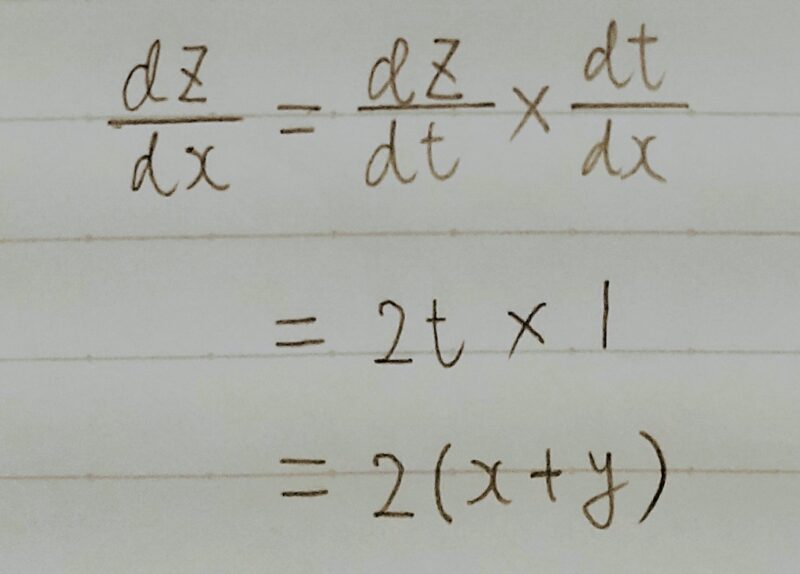 dz/dx = dz/dt × dt/dx
= 2t × 1
= 2(x+y)